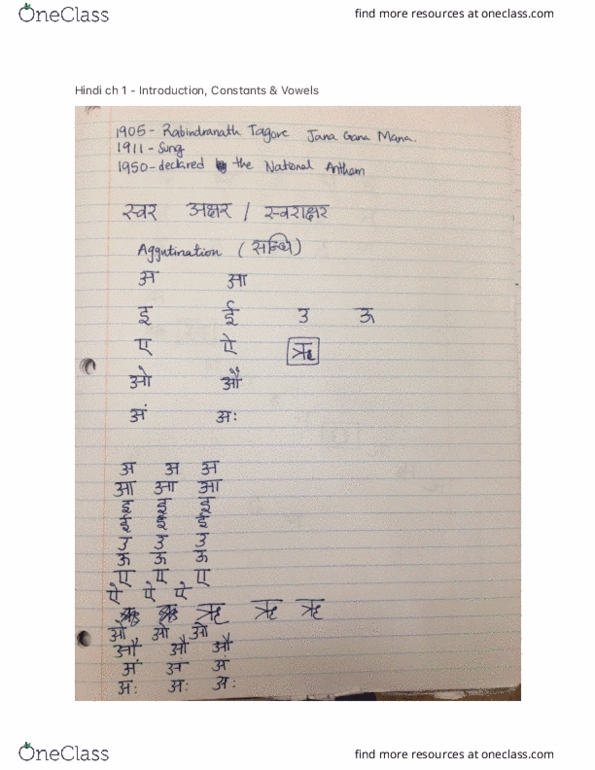 OneClass find more resources at oneclass.com
Hindi ch 1 - Introduction, Constants & Vowels
1905 - Rabindranath Tagore Jana Gana Mana.
1911 - Sung
1950 - declared the National Anthem
स्वर अक्षर / स्वराक्षर
Aggutination (सन्धि)
अ आ
इ ई उ ऊ
ए ऐ ऋ
ओ औ
अं अः
अ अ अ
आ आ आ
इ इ इ
ई ई ई
उ उ उ
ऊ ऊ ऊ
ए ए ए
ऐ ऐ ऐ
ऋ ऋ ऋ
ओ ओ ओ
औ औ औ
अं अ अं
अः अः अः
OneClass find more resources at oneclass.com